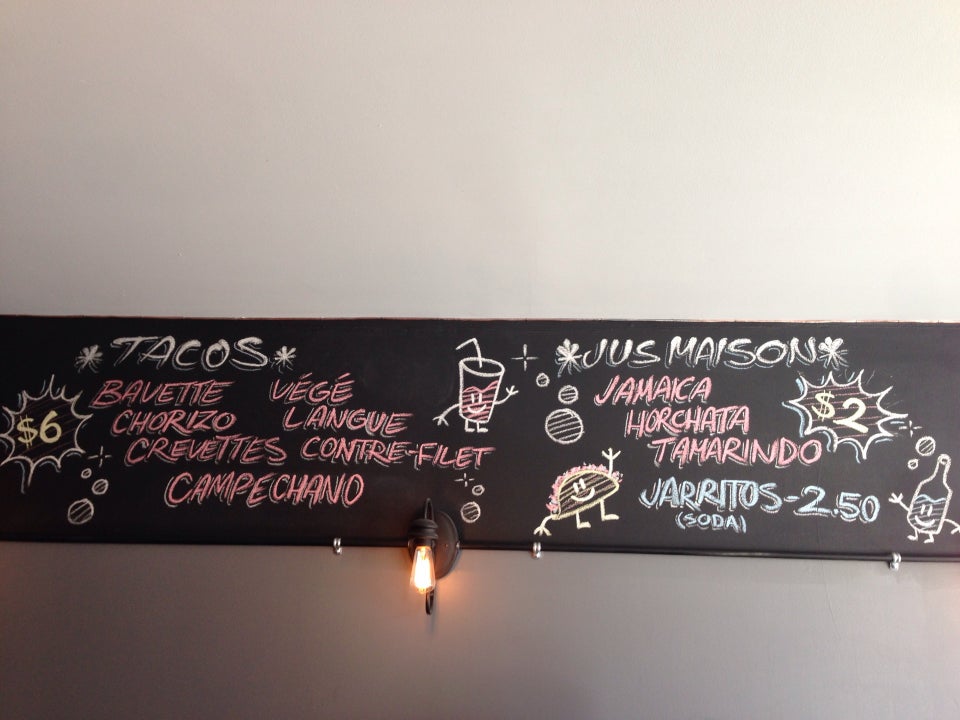 *TACOS*
$6
BAVETTE VÉGÉ
CHORIZO LANGUE
CREVETTES CONTRE-FILET
CAMPECHANO
*JUS MAISON*
JAMAICA
$2
HORCHATA
TAMARINDO
JARRITOS-2.50
(SODA)